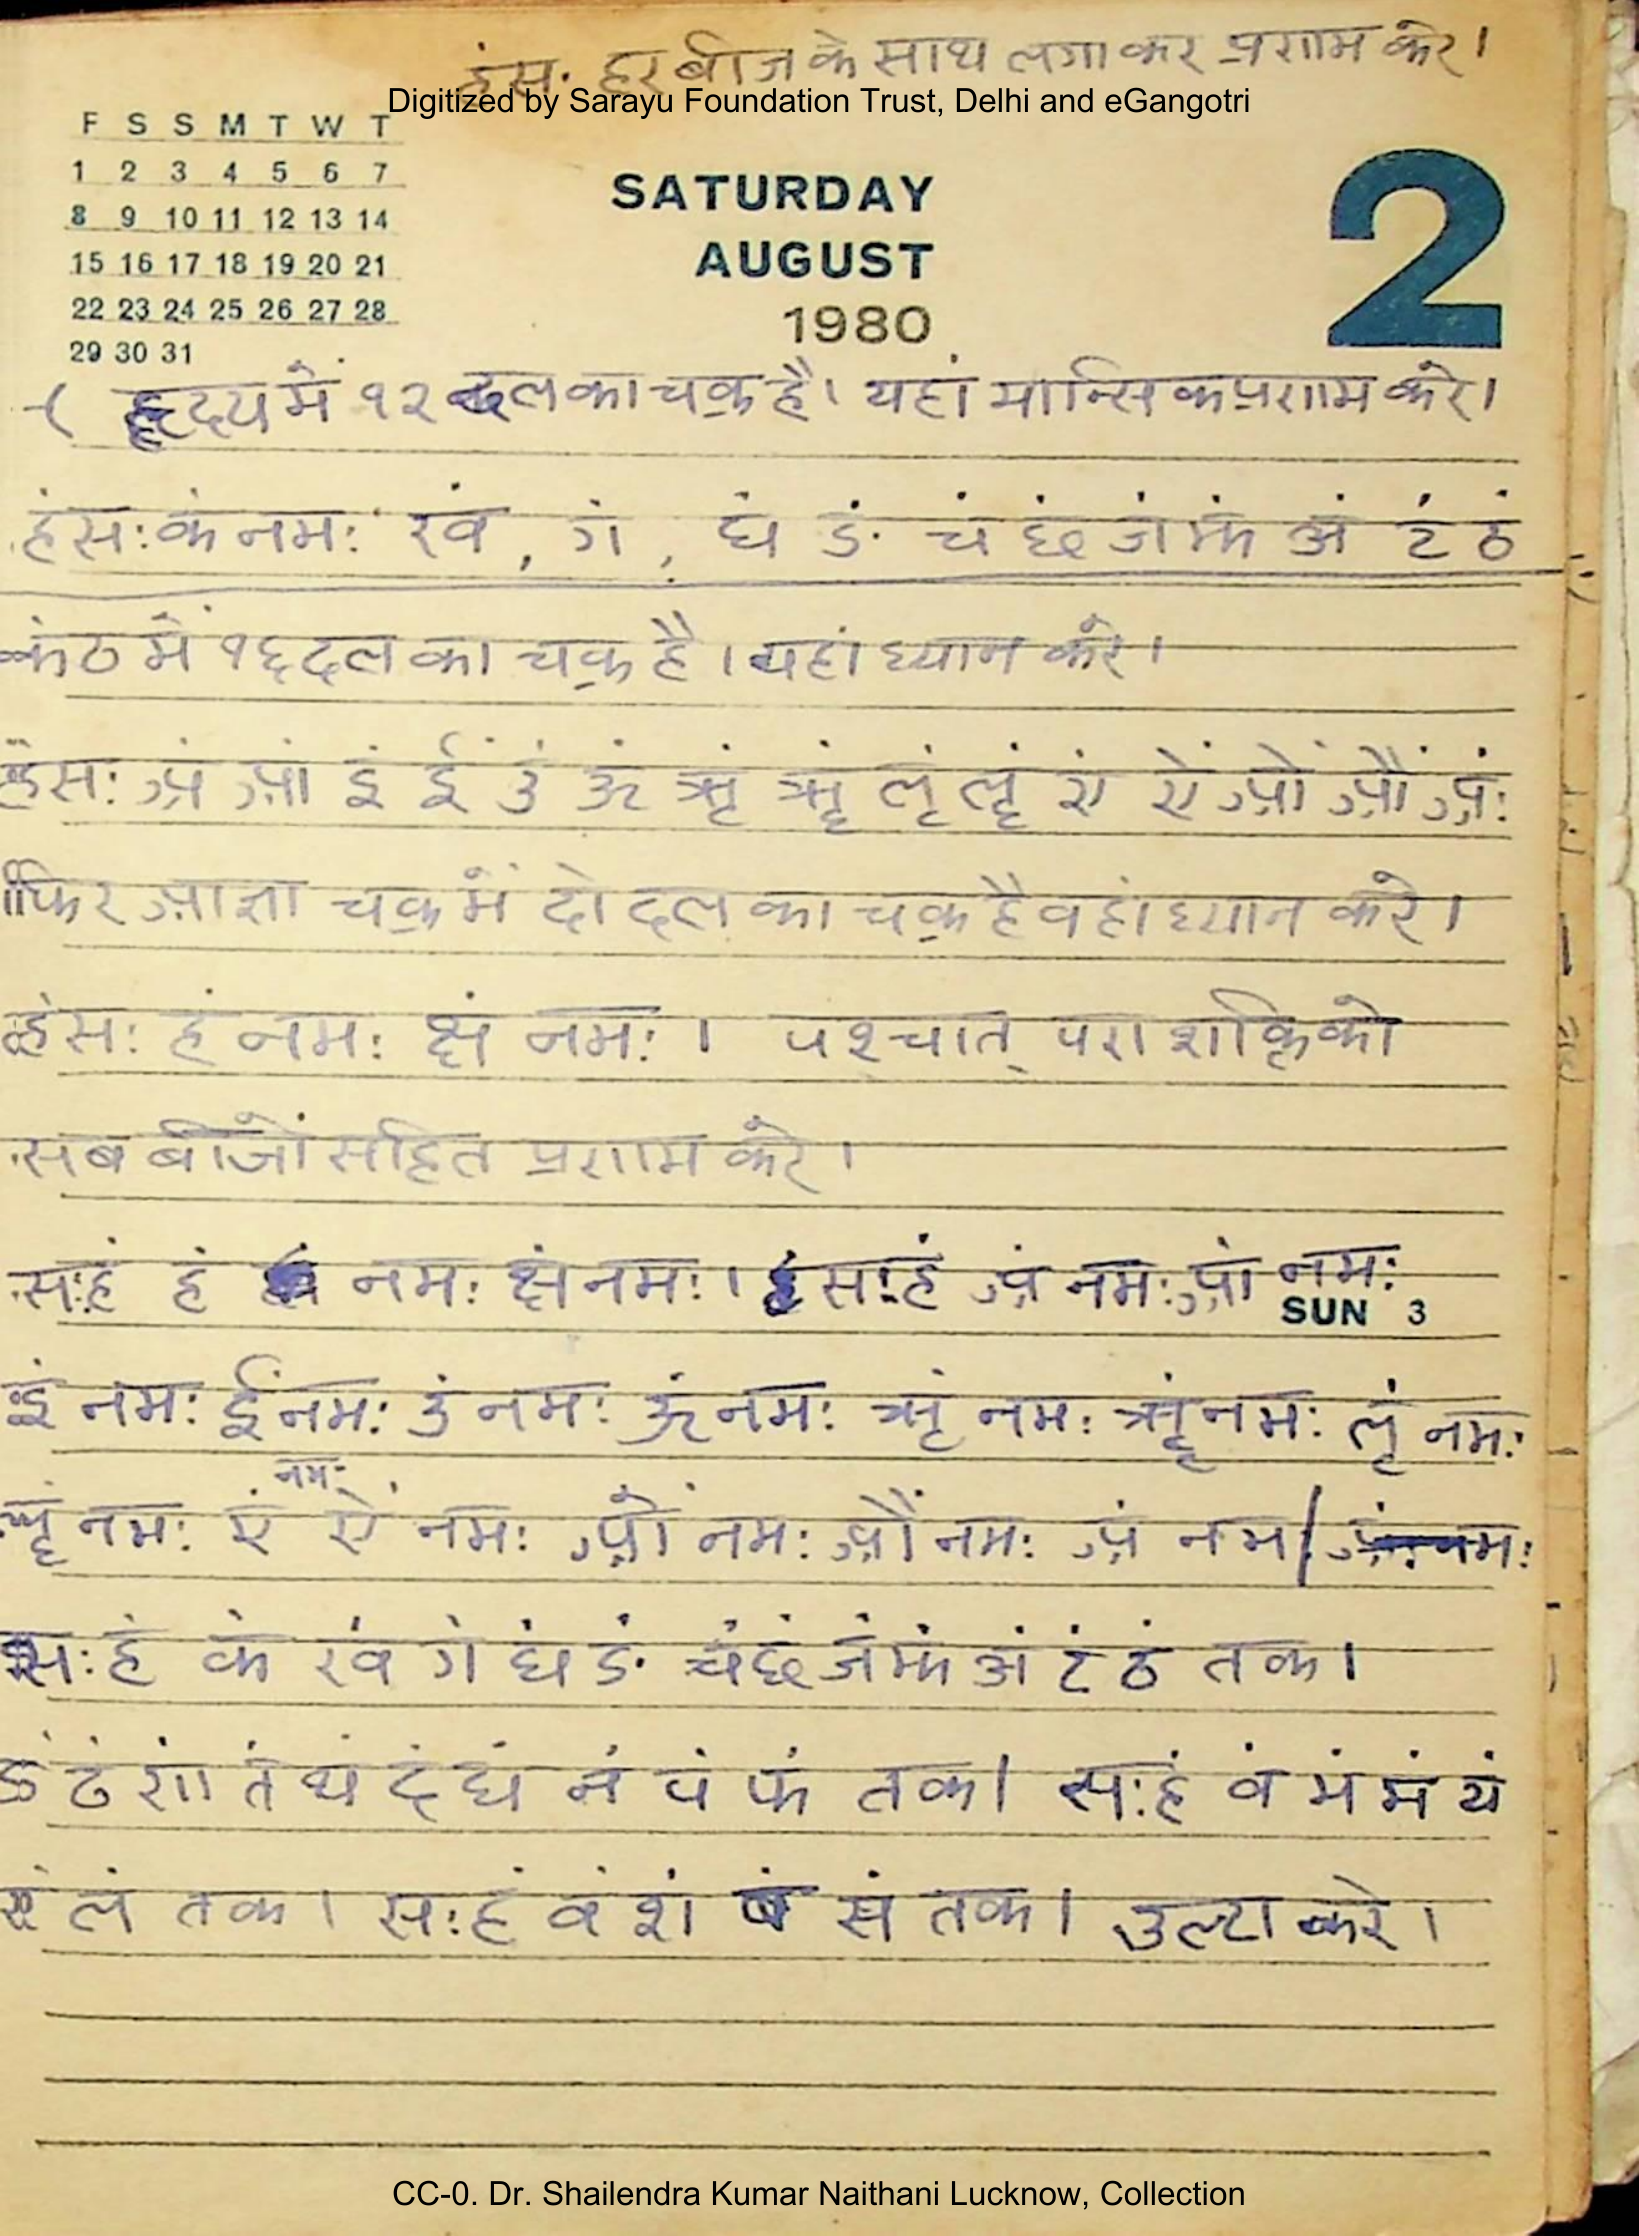 हंस: हर बीज के साथ लगाकर प्रणाम करे।
Digitized by Sarayu Foundation Trust, Delhi and eGangotri
F S S M T W T
1 2 3 4 5 6 7
8 9 10 11 12 13 14
15 16 17 18 19 20 21
22 23 24 25 26 27 28
29 30 31
SATURDAY
AUGUST
1980
2
हृदय में १२ दल का चक्र है। यहां मान्सिक प्रणाम करे।
हंस: कं नम: खं, गं, घं ङं चं छं जं झं अं टं ठं
कंठ में १६ दल का चक्र है। यहां ध्यान करे।
हंस: अं आं इं ईं उं ऊं ऋं ॠं लृं लॄं एं ऐं ओं औं अं:
फिर आज्ञा चक्र में दो दल का चक्र है वहां ध्यान करे।
हंस: हं नम: क्षं नम:। पश्चात् परा शक्ति को
सब बीजों सहित प्रणाम करे।
स:हं हं नम: क्षं नम:। स:हं अं नम: आं नम:
SUN 3
इं नम: ईं नम: उं नम: ऊं नम: ऋं नम: ॠं नम: लृं नम:
लॄं नम: एं नम: ऐं नम: ओं नम: औं नम: अं नम। अं: नम:
स:हं कं खं गं घं ङं चं छं जं झं अं टं ठं तक।
डं ढं णं तं थं दं धं नं पं फं तक। स:हं बं भं मं यं
रं लं तक। स:हं वं शं षं सं तक। उल्टा करे।
CC-0. Dr. Shailendra Kumar Naithani Lucknow, Collection